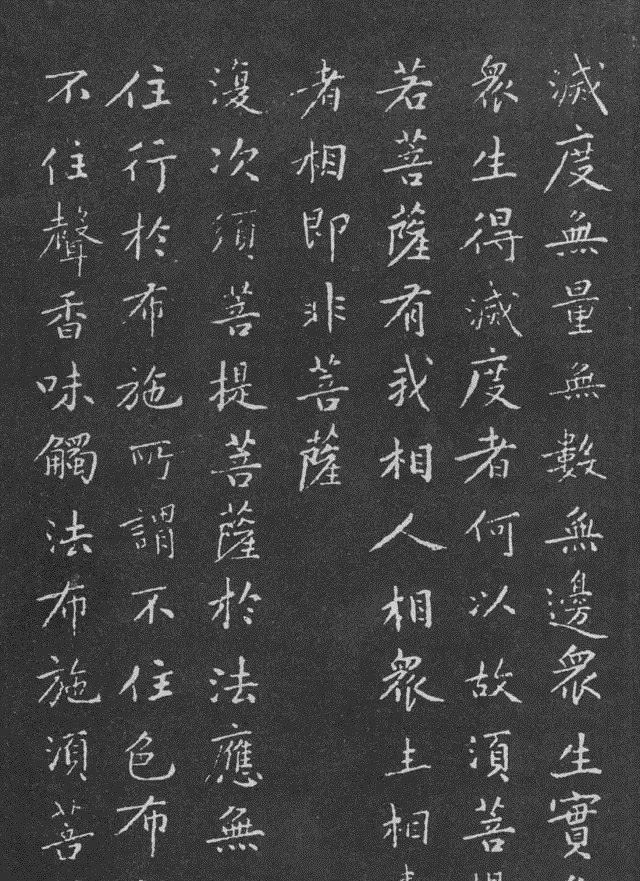 滅度無量無數無邊眾生實
眾生得滅度者何以故須菩
若菩薩有我相人相眾生相
者相即非菩薩
復次須菩提菩薩於法應無
住行於布施所謂不住色布
不住聲香味觸法布施須菩